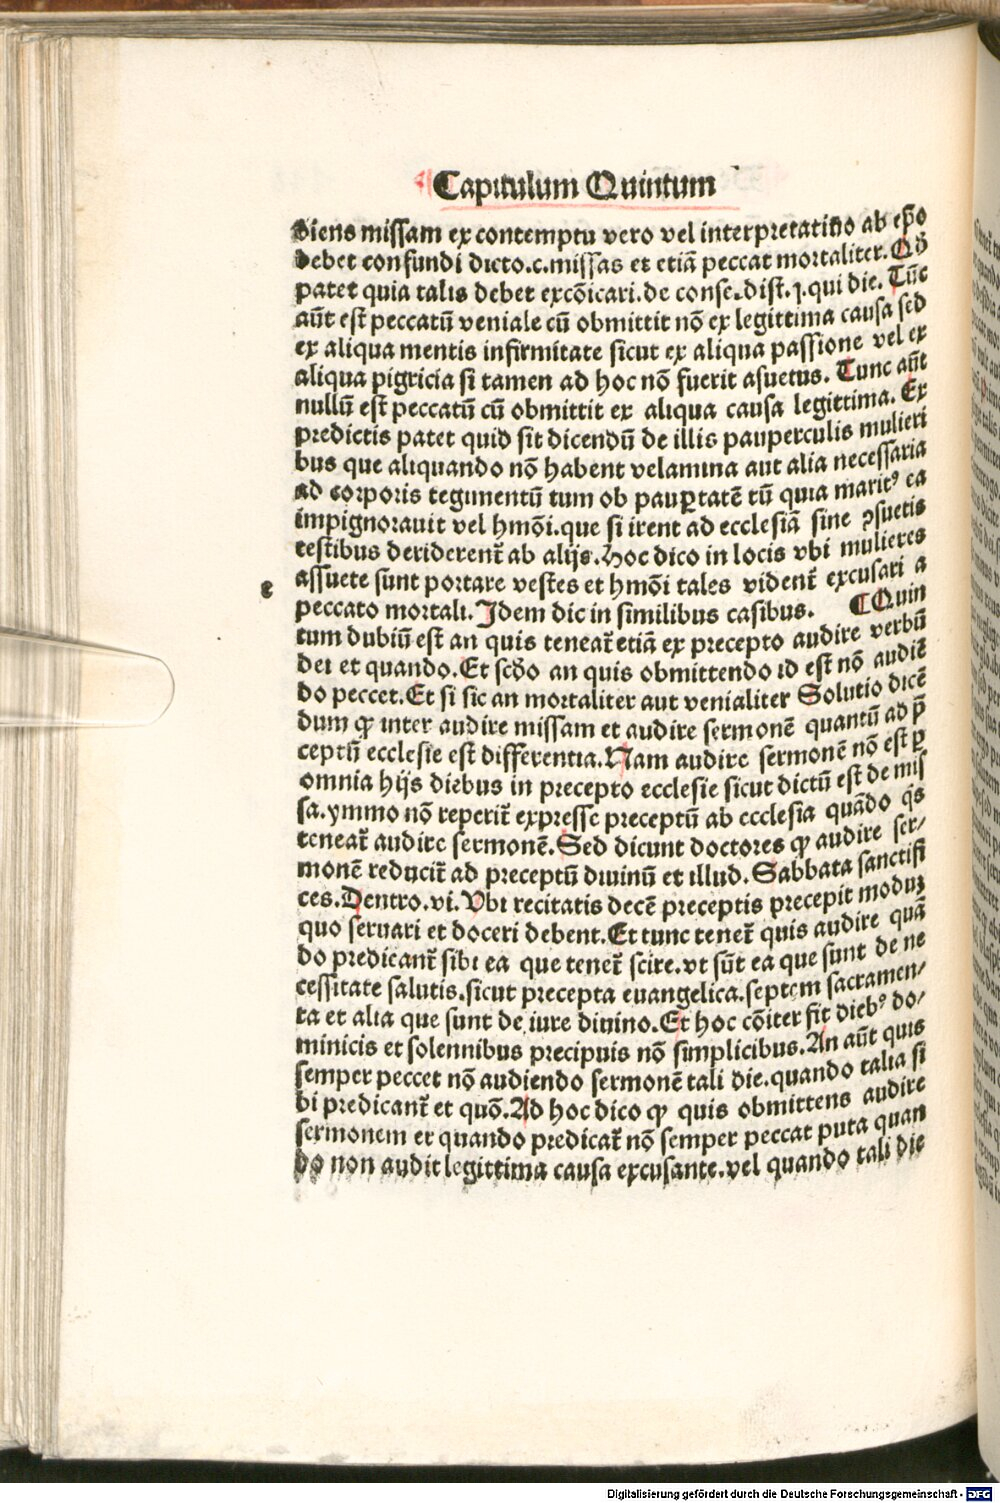 Capitulum Quintum
diens missam ex contemptu vero vel interpretatiũo ab ep̃o
debet confundi dicto.c.missas et etiã peccat mortaliter. Qð
patet quia talis debet excõicari.de conse.dist.j.qui die. Tũc
aũt est peccatũ veniale cũ obmittit nõ ex legittima causa sed
ex aliqua mentis infirmitate sicut ex aliqua passione vel ex
aliqua pigricia si tamen ad hoc nõ fuerit asuetus. Tunc aũt
nullũ est peccatũ cũ obmittit ex aliqua causa legittima. Ex
predictis patet quid sit dicendũ de illis pauperculis mulieri
bus que aliquando nõ habent velamina aut alia necessaria
ad corporis tegumentũ tum ob paup̲tatẽ tũ quia maritꝰ ea
impignorauit vel hmõi.que si irent ad ecclesiã sine ꝯsuetis
testibus deriderent᷑ ab alijs.Hoc dico in locis vbi mulieres
assuete sunt portare vestes et hmõi tales vident᷑ excusari a
e
peccato mortali. Idem dic in similibus casibus. ¶Quin
tum dubiũ est an quis teneat᷑ etiã ex precepto audire verbũ
dei et quando.Et scðo an quis obmittendo id est nõ audiẽ
do peccet.Et si sic an mortaliter aut venialiter Solutio dicẽ
dum ꝙ inter audire missam et audire sermonẽ quantũ ad p̃
ceptũ ecclesie est differentia.Nam audire sermonẽ nõ est ꝑ
omnia hijs diebus in precepto ecclesie sicut dictũ est de mis
sa.ymmo nõ reperit᷑ expresse preceptũ ab ecclesia quãdo q̃s
teneat᷑ audire sermonẽ.Sed dicunt doctores ꝙ audire ser/
monẽ reducit᷑ ad preceptũ diuinũ et illud.Sabbata sanctifi
ces.Dentro.vi.Vbi recitatis decẽ preceptis precepit moduꝫ
quo seruari et doceri debent.Et tunc tenet᷑ quis audire quã
do predicant᷑ sibi ea que tenet᷑ scire.vt sũt ea que sunt de ne
cessitate salutis.sicut precepta euangelica.septem sacramen/
ta et alia que sunt de iure diuino.Et hoc cõiter fit diebꝰ do/
minicis et solennibus precipuis nõ simplicibus.An aũt quis
semper peccet nõ audiendo sermonẽ tali die.quando talia si
bi predicant᷑ et quõ.Ad hoc dico ꝙ quis obmittens audire
sermonem er quando predicat᷑ nõ semper peccat puta quan
do non audit legittima causa excusante.vel quando tali die
Digitalisierung gefördert durch die Deutsche Forschungsgemeinschaft - DFG